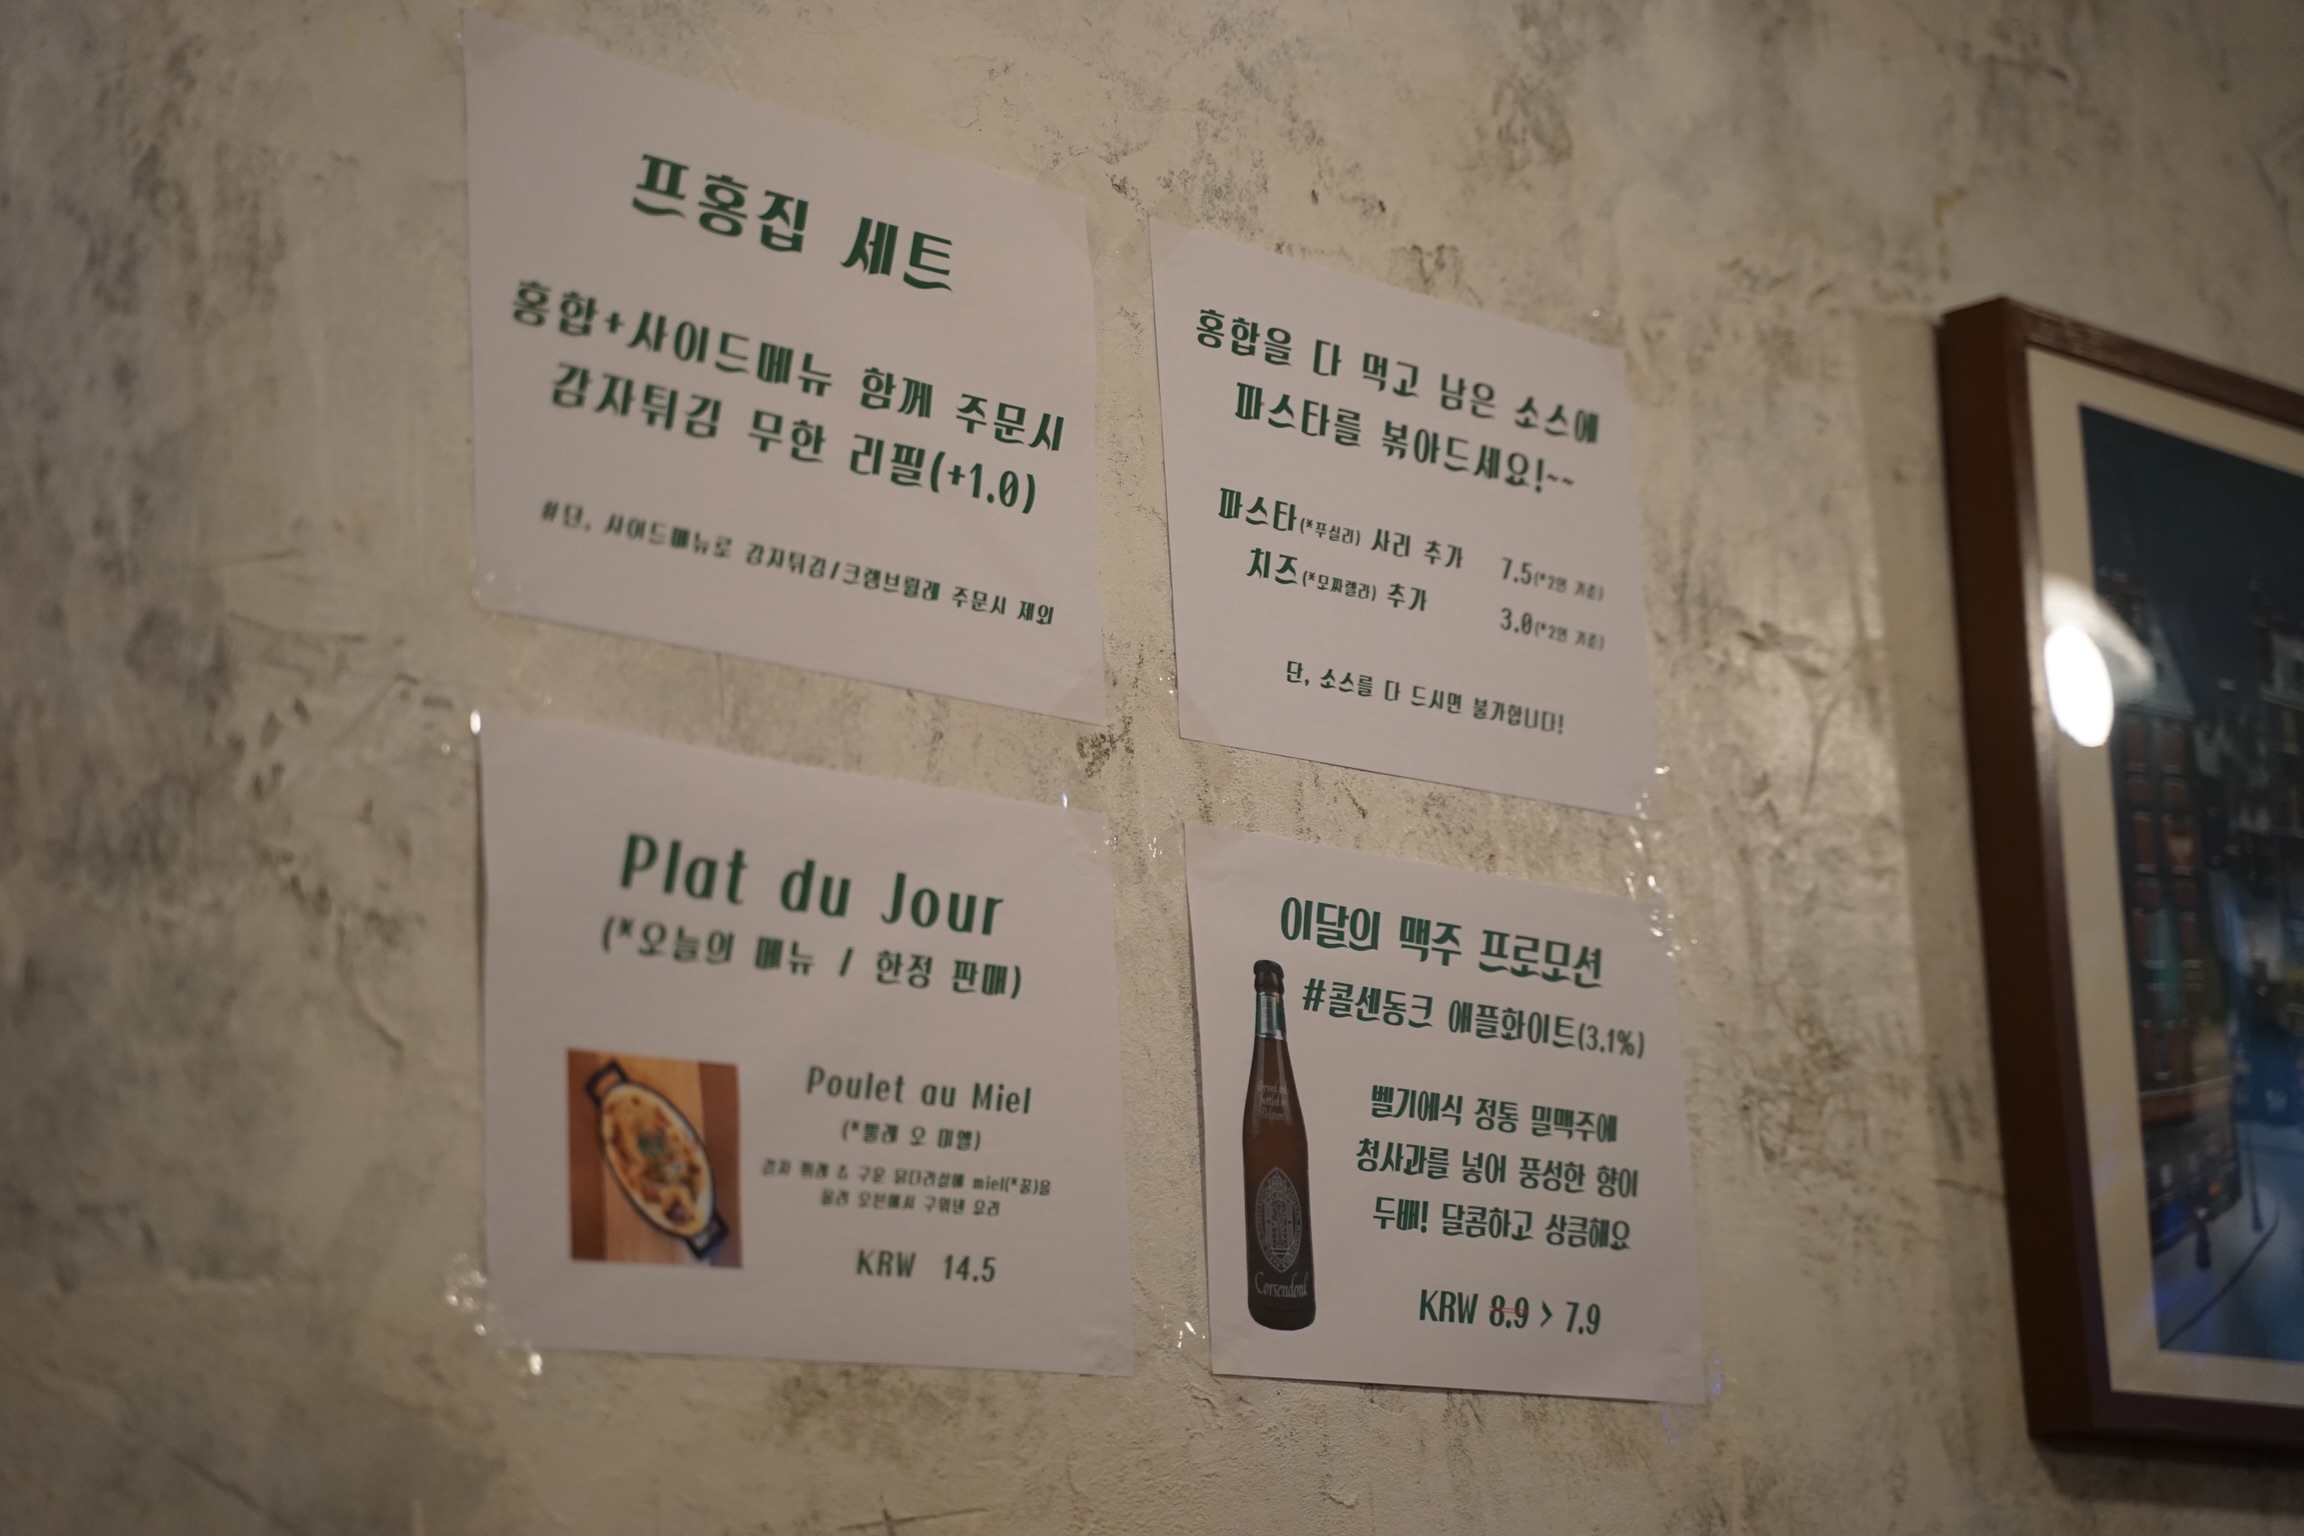 프홍집 세트
홍합+사이드메뉴 함께 주문시
감자튀김 무한 리필(+1.0)
#단, 사이드메뉴로 감자튀김/크렘브륄레 주문시 제외
홍합을 다 먹고 남은 소스에
파스타를 볶아드세요!~~
파스타(*푸실리) 사리 추가 7.5(*2인 기준)
치즈(*모짜렐라) 추가 3.0(*2인 기준)
단, 소스를 다 드시면 불가합니다!
Plat du Jour
(*오늘의 메뉴 / 한정 판매)
Poulet au Miel
(*뿔레 오 미엘)
감자 퓌레 & 구운 닭다리살에 miel(*꿀)을
올려 오븐에서 구워낸 요리
KRW 14.5
이달의 맥주 프로모션
#콜센동크 애플화이트(3.1%)
벨기에식 정통 밀맥주에
청사과를 넣어 풍성한 향이
두배! 달콤하고 상큼해요
KRW 8.9 > 7.9
Corsendonk